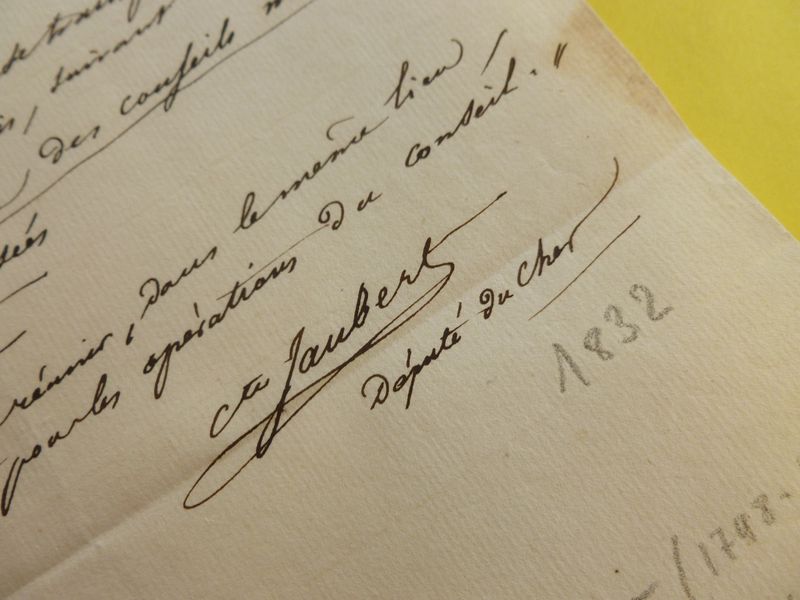 suivant
des conseils
réunir, dans le même lieu,
pour les opérations du conseil."
Cte Jaubert
Député du Cher
1832
/1798-